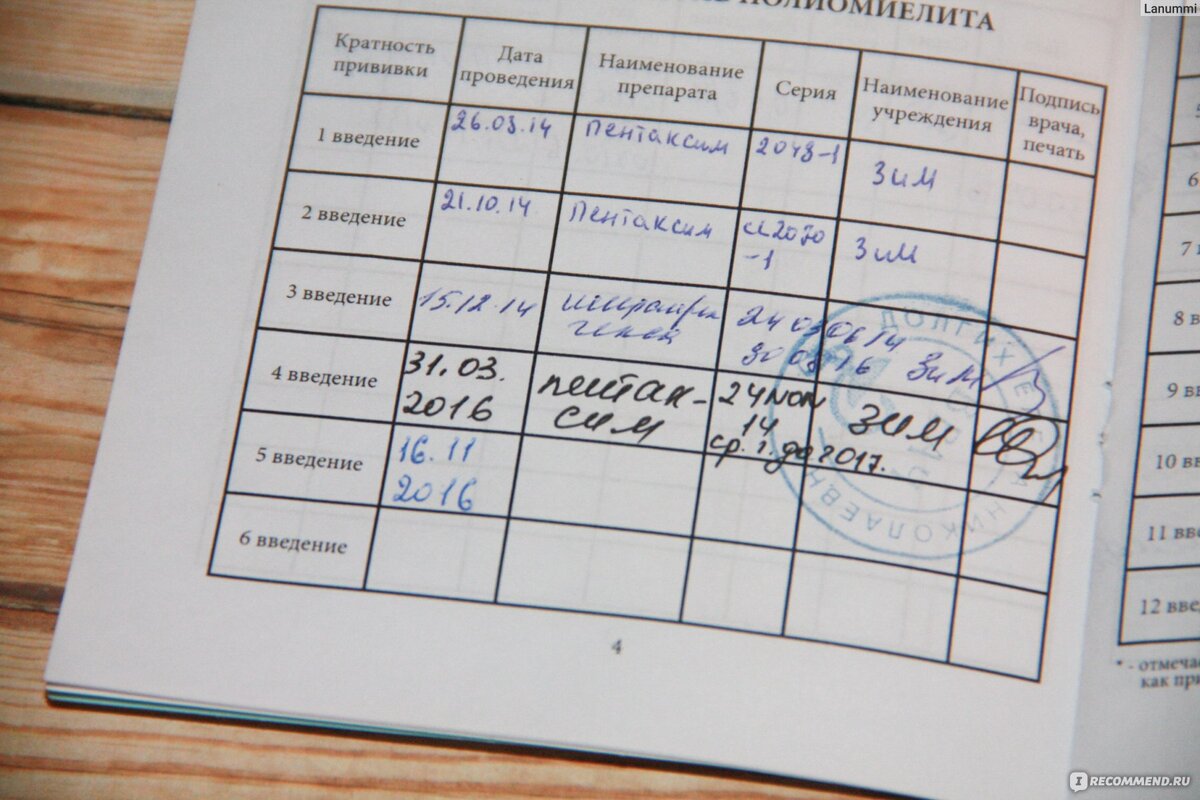 Lanummi
ПОЛИОМИЕЛИТА
Кратность
прививки
Дата
проведения
Наименование
препарата
Серия
Наименование
учреждения
Подпись
врача,
печать
1 введение
26.03.14
пентаксим
2048-1
ЗиМ
2 введение
21.10.14
пентаксим
2070
-1
ЗиМ
3 введение
15.12.14
ЗиМ
4 введение
31.03.
2016
пентак-
сим
24
14
ср. г. до 2017.
ЗИМ
5 введение
16.11
2016
6 введение
ДОЛГИХ
НИКОЛАЕВН
4
6
7
8 в
9 в
10 в
11 вве
12 вве
* - отмеча
как при
IRECOMMEND.RU